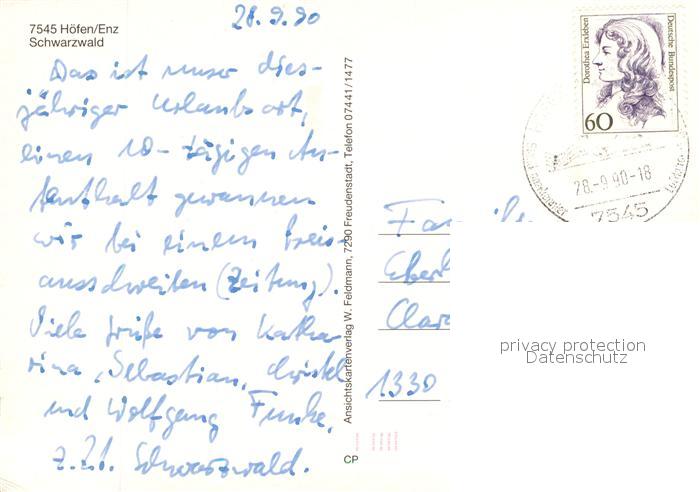 28.9.90
7545 Höfen/Enz
Schwarzwald
Das ist unser dies-
jähriger Urlaubsort,
einen 10-tägigen Au-
fenthalt gewannen
wir bei einem Preis-
ausschreiben (Zeitung).
Viele Grüße von Katha-
rina, Sebastian, Christel
und Wolfgang Funke,
z.Zt. Schwarzwald.
Ansichtskartenverlag W. Feldmann, 7290 Freudenstadt, Telefon 07441/1477
CP
Dorothea Erxleben
Deutsche Bundespost
60
28.-9.90-18
7545
Fa
Eber
Clar
1330
privacy protection
Datenschutz